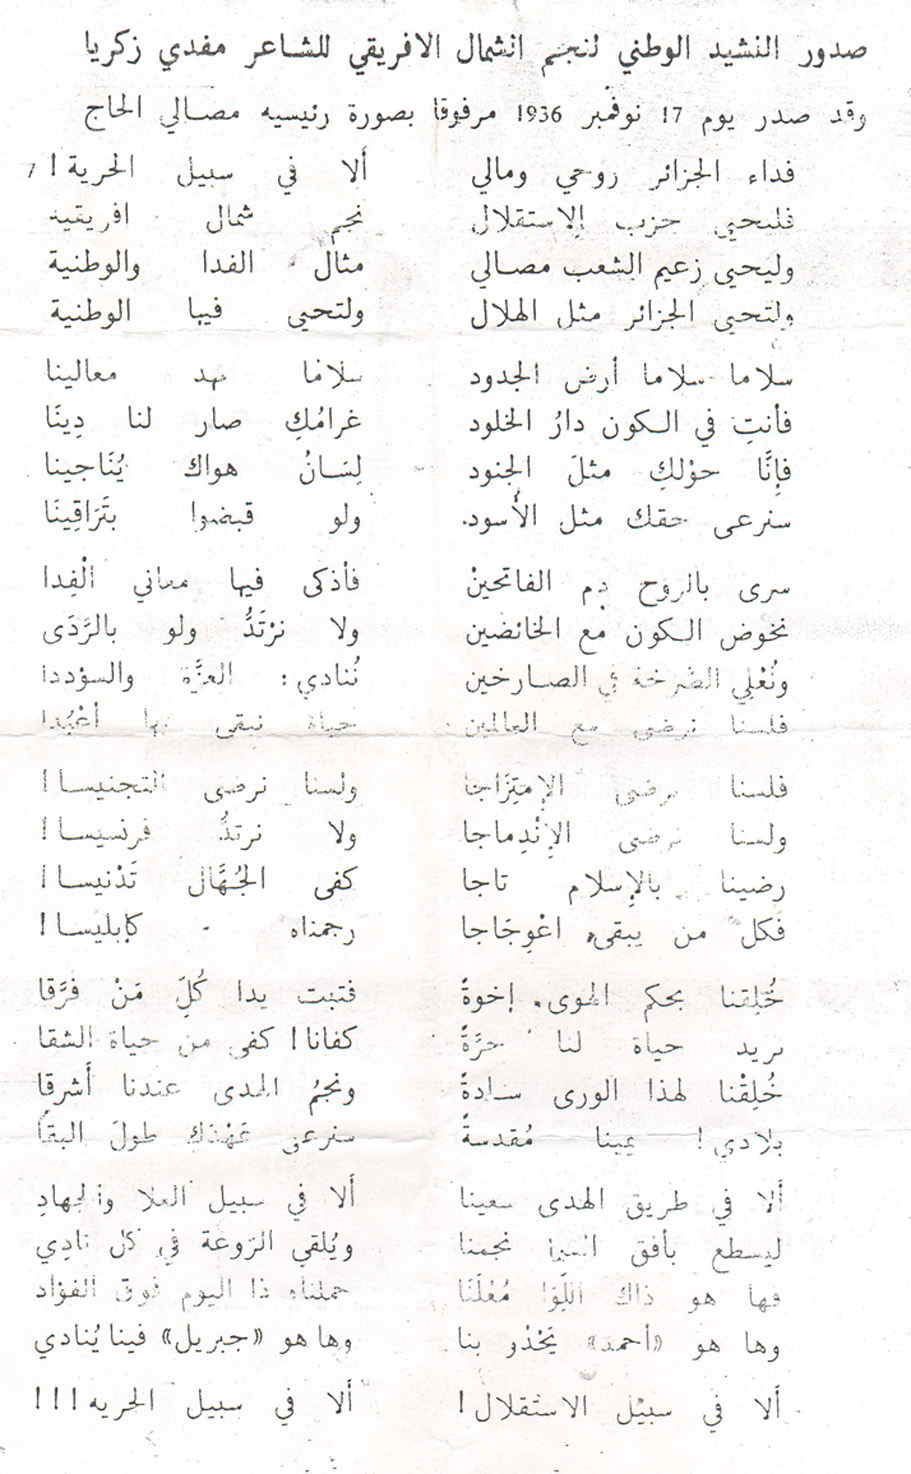 صدور النشيد الوطني لنجم الشمال الافريقي للشاعر مفدي زكريا
وقد صدر يوم 17 نوفمبر 1936 مرفوقا بصورة رئيسيه مصالي الحاج
فداء الجزائر روحي ومالي ألا في سبيل الحرية !
فليحيى حزب الاستقلال نجم شمال افريقية
وليحيى زعيم الشعب مصالي مثال الفدا والوطنية
ولتحيى الجزائر مثل الهلال ولتحيى فيها الوطنية
سلاما سلاما أرض الجدود سلاما مهد معالينا
فأنتِ في الكون دارُ الخلود غرامُكِ صار لنا دِينَا
فإنَّا حوْلكِ مثلَ الجنود لِسَانُ هواك يُنَاجينا
سنرعى حقك مثل الأسود ولو قبضوا بتَرَاقِينَا
سرى بالروح دم الفاتحينْ فأذكى فيها معاني الْفِدا
نخوض الكون مع الخائضين ولا نرْتَدُّ ولو بالرَّدَى
ونُعْلِي الصَّرخة في الصارخين نُنادي : العزَّة والسؤددا
فلسنا نرضى مع العالمين حياة نبقى بها أعْبُدا
فلسنا نرضى الإمتِزَاجا ولسنا نرضى التجنيسا !
ولسنا نرضى الإنْدِماجا ولا نرتدُّ فرنسيسا !
رضينا بالإسلام تاجا كفى الجُهَّال تَدْنيسا !
فكل من يبقى اعْوِجَاجا رجمناه كإبليسا !
خُلِقنا بحكم الهوى إخوةً فتبت يدا كُلِ مَنْ فرَّقا
نريد حياة لنا حرَّةً كفانا ! كفى من حياة الشقا
خُلِقْنا لهذا الورى سادةً ونجمُ الهدى عندنا أَشرقا
بلادي ! يمينا مُقدسةً سنرعى عَهْدَكِ طولَ البقَا
ألا في طريق الهدى سعينا ألا في سبيل العلا والجهادِ
ليسطع بأفق السما نجمنا ويُلقي الروعة في كل نادِي
فها هو ذاك اللِّوَا مُعْلَنَا حملناه ذا اليوم فوق الفؤاد
وها هو «أحمد» يَحْدُو بنا وها هو «جبريل» فينا يُنادي
ألا في سبيْل الاستقلال ! ألا في سبيل الحريه ! ! !